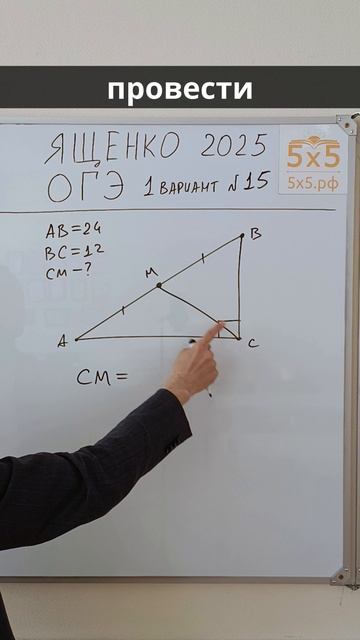 провести
ЯЩЕНКО 2025
ОГЭ 1 ВАРИАНТ №15
5x5
5x5.рф
AB=24
BC=12
CM-?
B
M
A
C
CM=